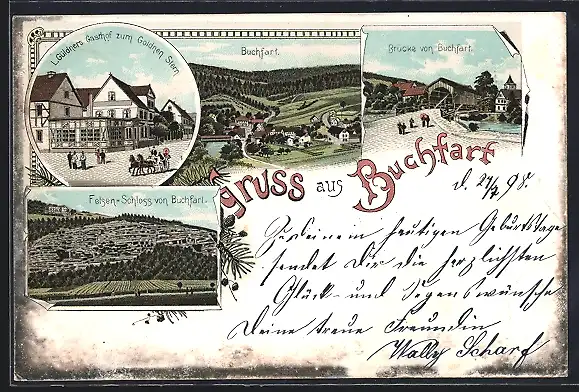 L. Güldners Gasthof zum Goldnen Stern
Buchfart.
Brücke von Buchfart.
Felsen-Schloss von Buchfart.
Gruss aus Buchfart
d. 27/2 98.
Zu Deinem heutigen Geburtstage
sendet Dir die herzlichsten
Glück- und Segenswünsche
Deine treue Freundin
Wally Scharf